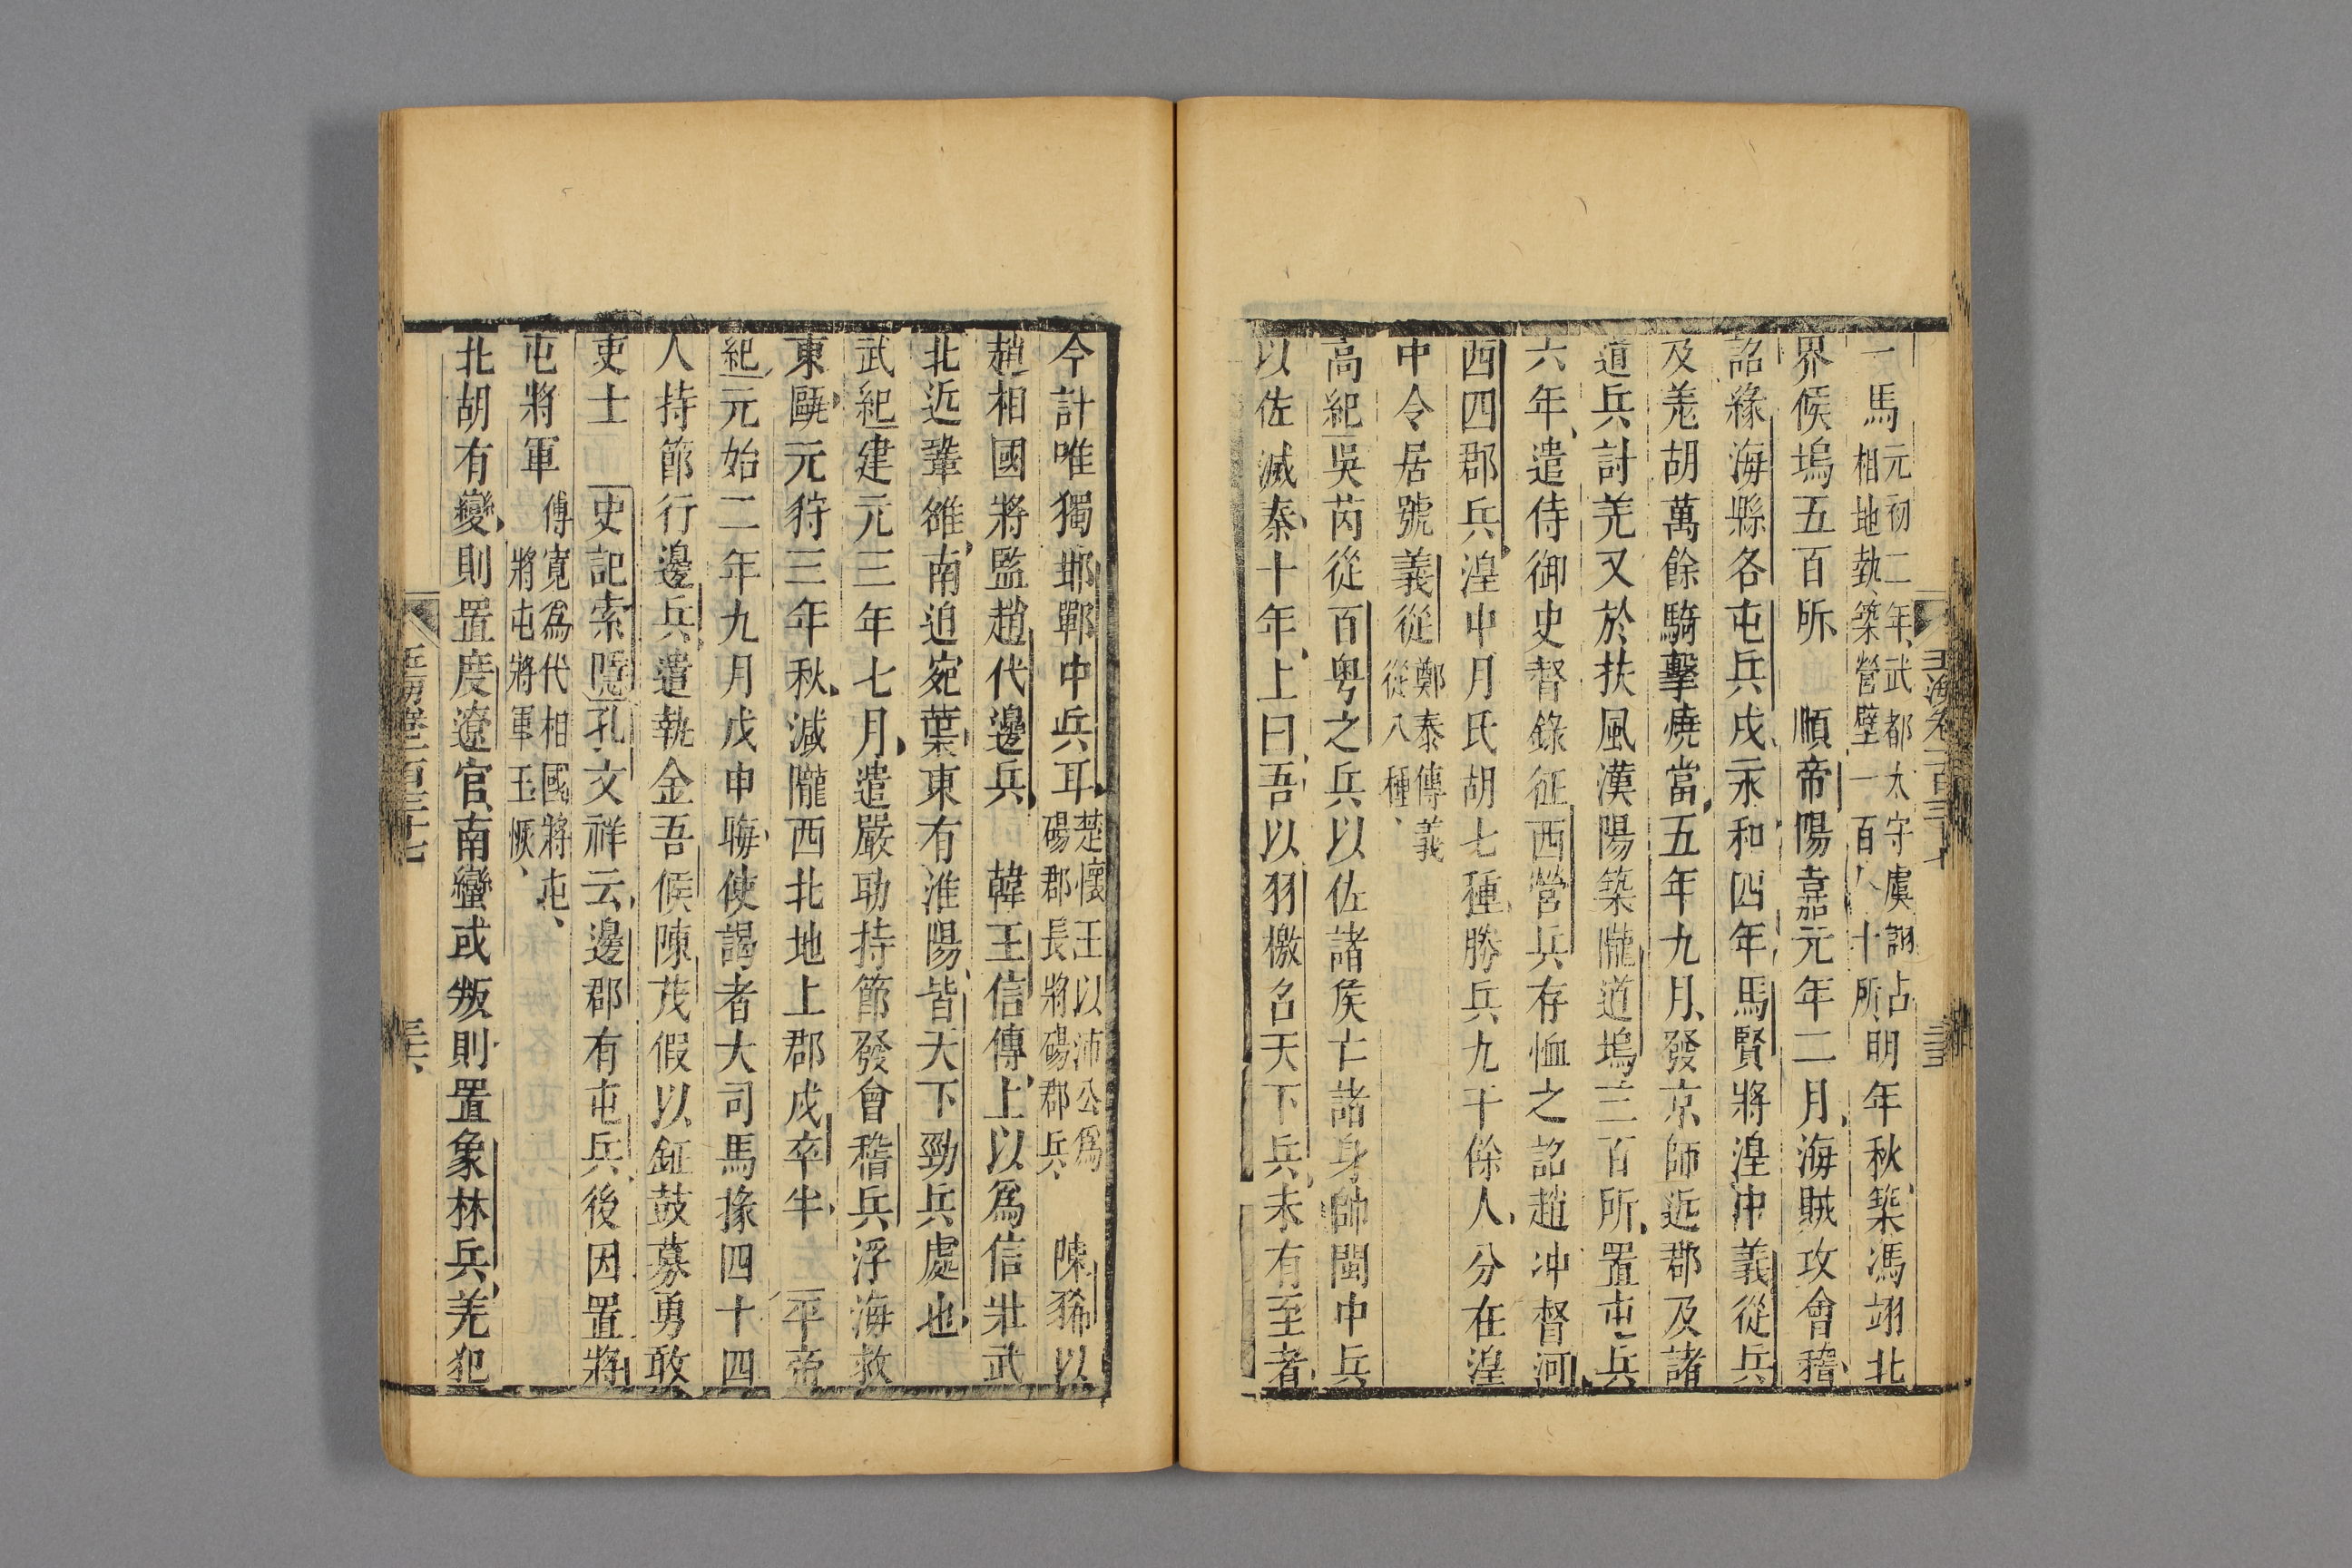 一馬元初二年武都太守虞詡占相地埶築營壁一百八十所明年秋築馮翊北
界候塢五百所 順帝陽嘉元年二月海賊攻會稽
詔緣海縣各屯兵戍永和四年馬賢將湟中義從兵
及羌胡萬餘騎擊燒當五年九月發京師近郡及諸
道兵討羌又於扶風漢陽築隴道塢三百所置屯兵
六年遣侍御史督錄征西營兵存恤之詔趙沖督河
西四郡兵湟中月氏胡七種勝兵九千餘人分在湟
中令居號義從鄭泰傳義從八種
高紀吳芮從百粵之兵以佐諸侯亡諸身帥閩中兵
以佐滅秦十年上曰吾以羽檄召天下兵未有至者
今計唯獨邯鄲中兵耳楚懷王以沛公爲碭郡長將碭郡兵 陳豨以
趙相國將監趙代邊兵 韓王信傳上以爲信壯武
北近鞏雒南迫宛葉東有淮陽皆天下勁兵處也
武紀建元三年七月遣嚴助持節發會稽兵浮海救
東甌元狩三年秋減隴西北地上郡戍卒半 平帝
紀元始二年九月戊申晦使謁者大司馬掾四十四
人持節行邊兵遣執金吾候陳茂假以鉦鼓募勇敢
吏士 史記索隱孔文祥云邊郡有屯兵後因置將
屯將軍傅寬爲代相國將屯將屯將軍王恢
北胡有變則置度遼官南蠻或叛則置象林兵羌犯
玉海卷一百三十七